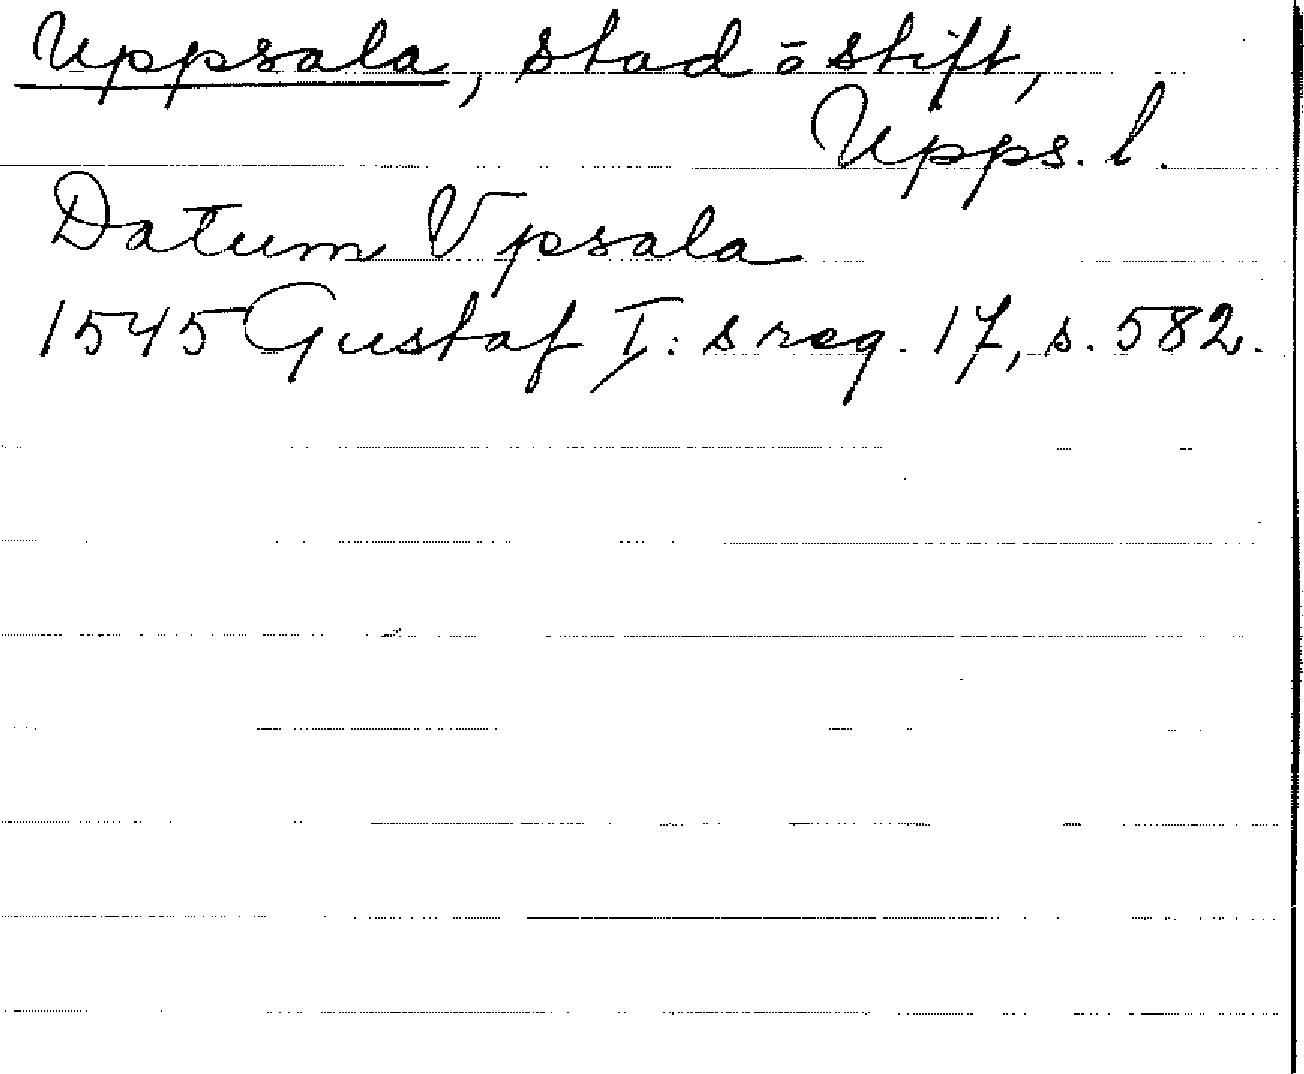 Uppsala, stad o stift,
Upps. l.
Datum Vpsala
1545 Gustaf I: s reg. 17, s. 582.